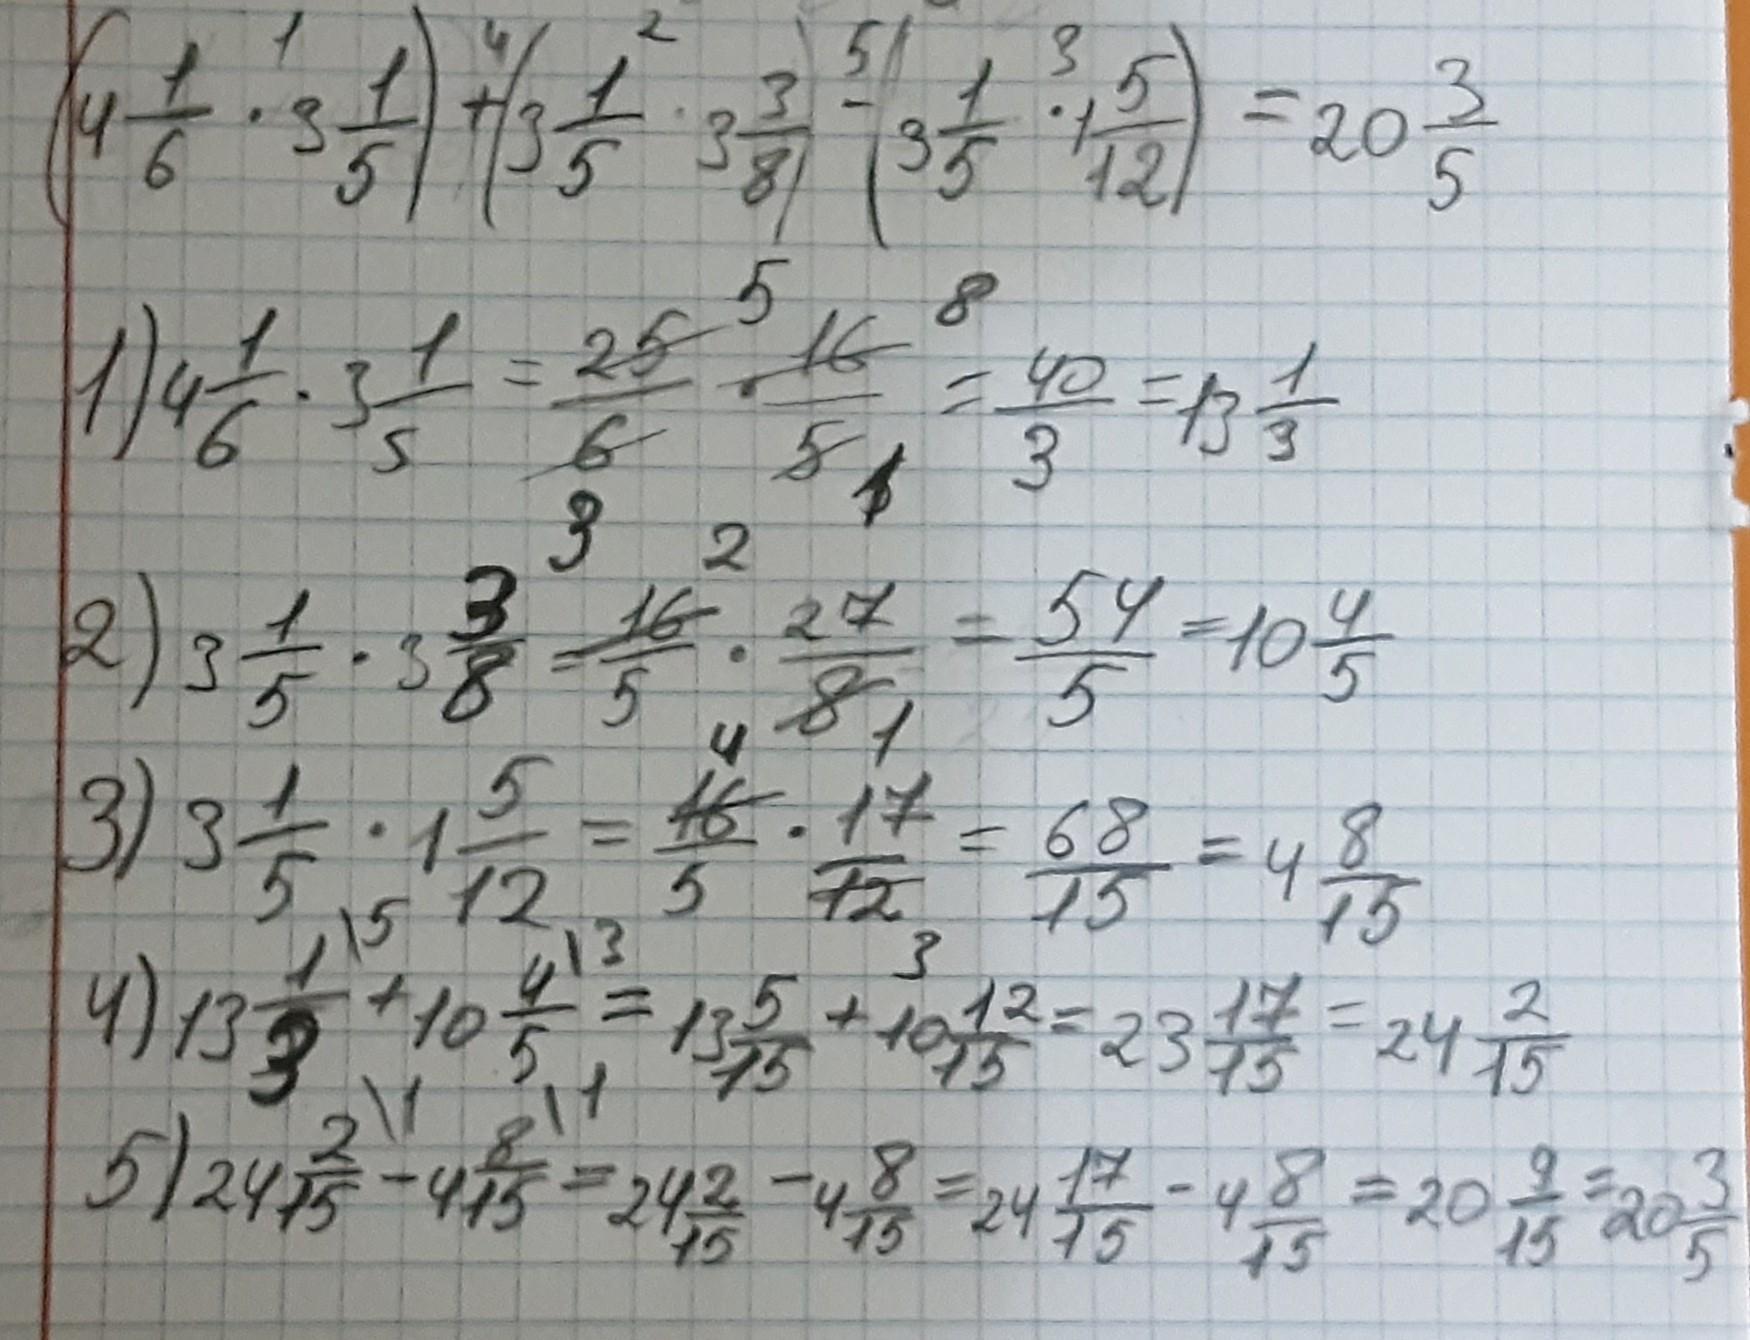 (4 1/6 · 3 1/5) + (3 1/5 · 3 3/8) - (3 1/5 · 1 5/12) = 20 3/5
1) 4 1/6 · 3 1/5 = 25/6 · 16/5 = 40/3 = 13 1/3
2) 3 1/5 · 3 3/8 = 16/5 · 27/8 = 54/5 = 10 4/5
3) 3 1/5 · 1 5/12 = 16/5 · 17/12 = 68/15 = 4 8/15
4) 13 1/3 \5 + 10 4/5 \3 = 13 5/15 + 10 12/15 = 23 17/15 = 24 2/15
5) 24 2/15 \1 - 4 8/15 \1 = 24 2/15 - 4 8/15 = 24 17/15 - 4 8/15 = 20 9/15 = 20 3/5